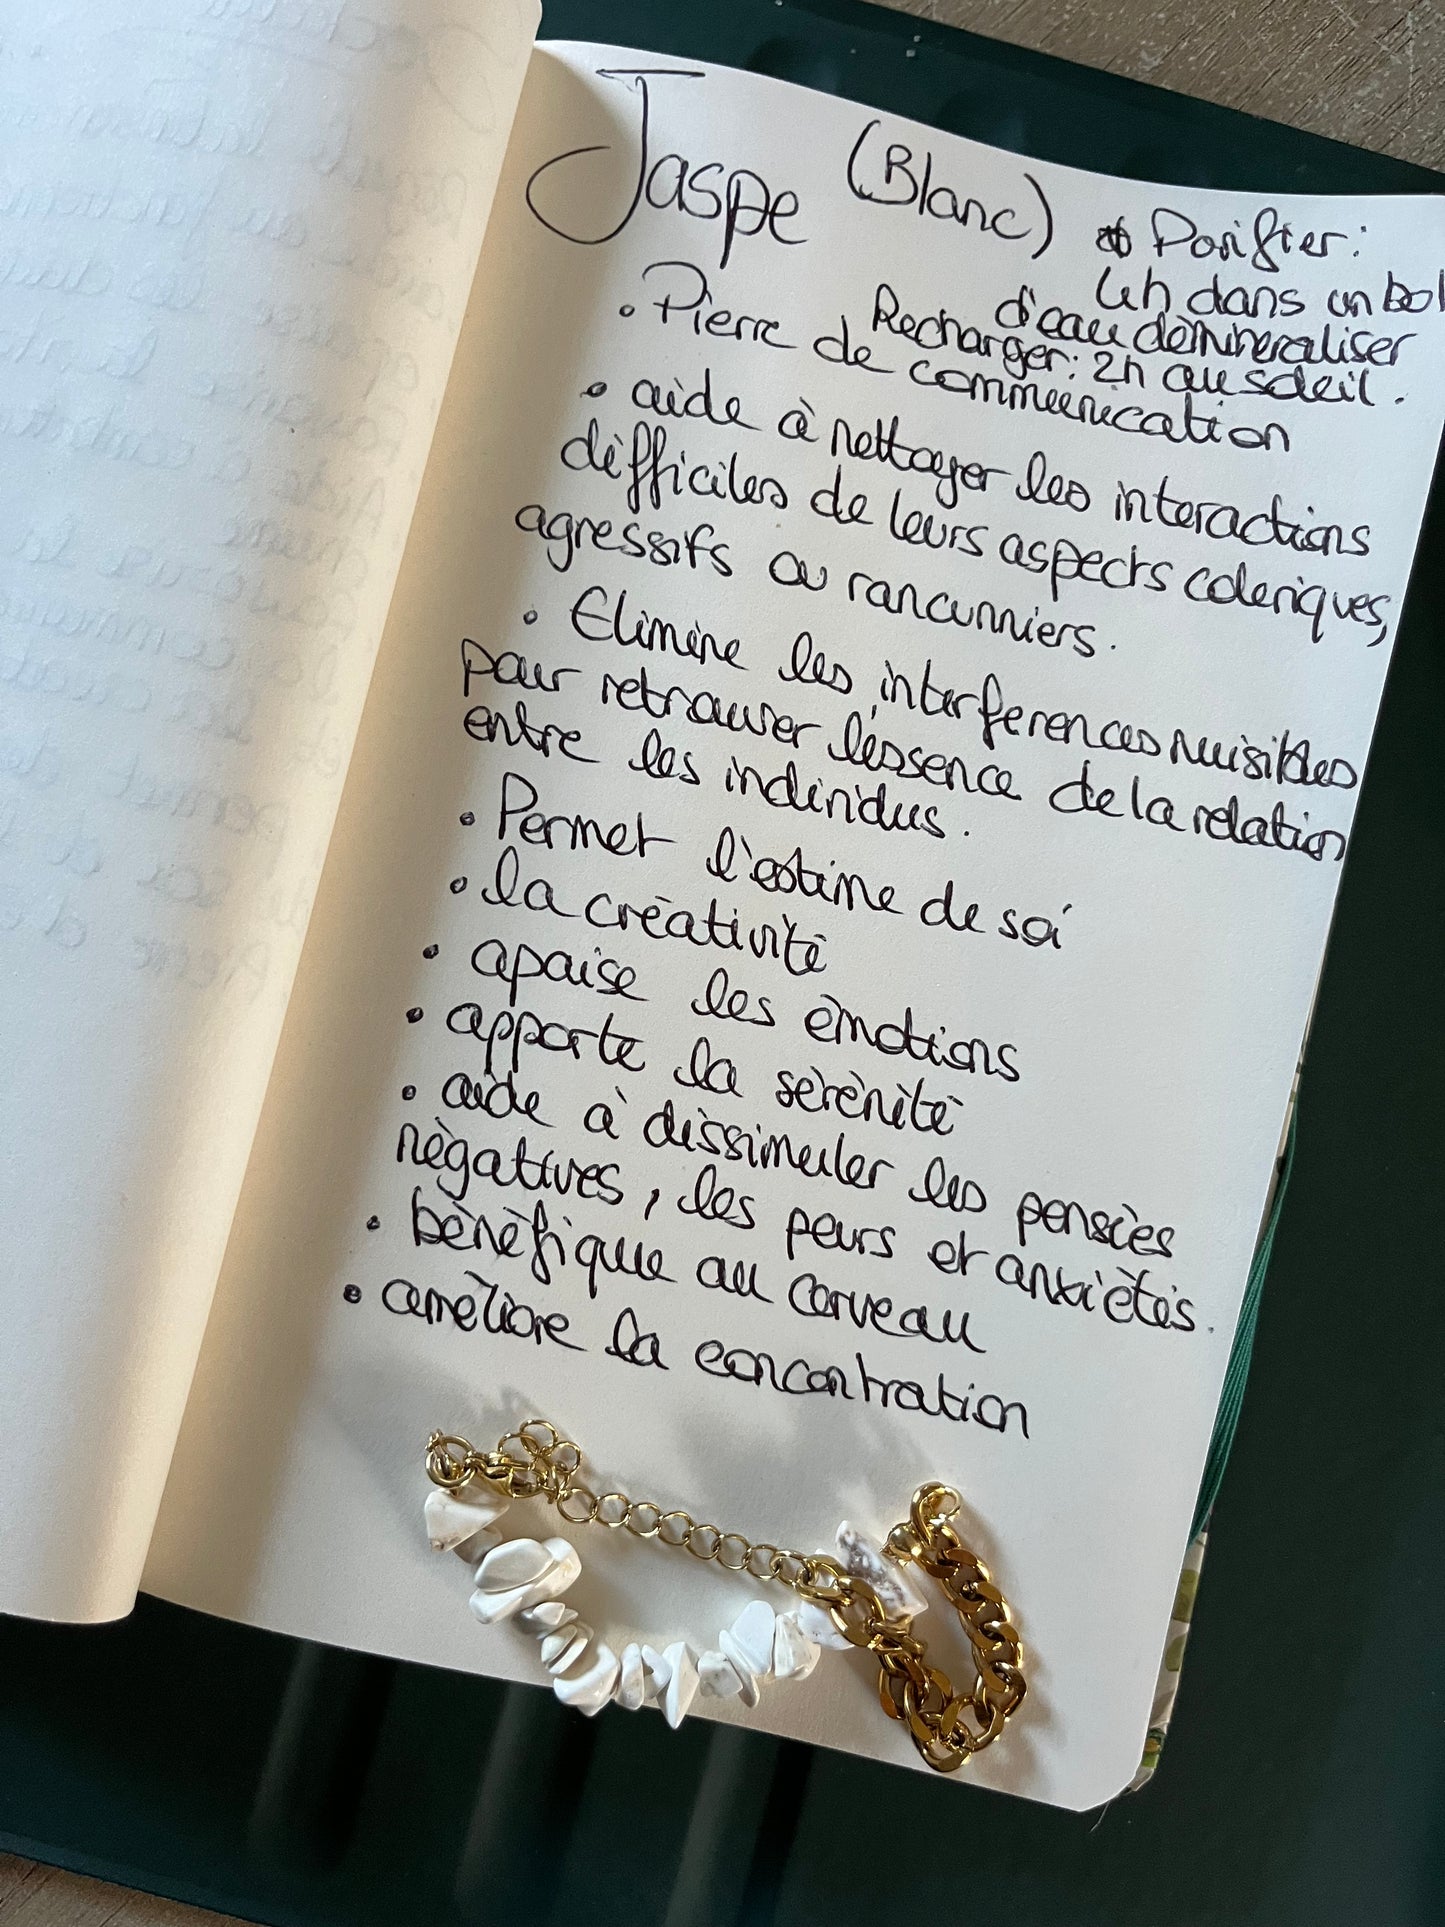 Jaspe (Blanc) Purifier :
4h dans un bol
d'eau démineraliser
Recharger : 2h au soleil.
• Pierre de communication
• aide à nettoyer les interactions
difficiles de leurs aspects coleriques,
agressifs ou rancunniers.
• Elimine les interferences nuisibles
pour retrouver l'essence de la relation
entre les individus.
• Permet l'estime de soi
• la créativité
• apaise les émotions
• apporte la sérénité
• aide à dissimuler les pensées
négatives, les peurs et anxiétés.
• bénéfique au cerveau
• améliore la concentration